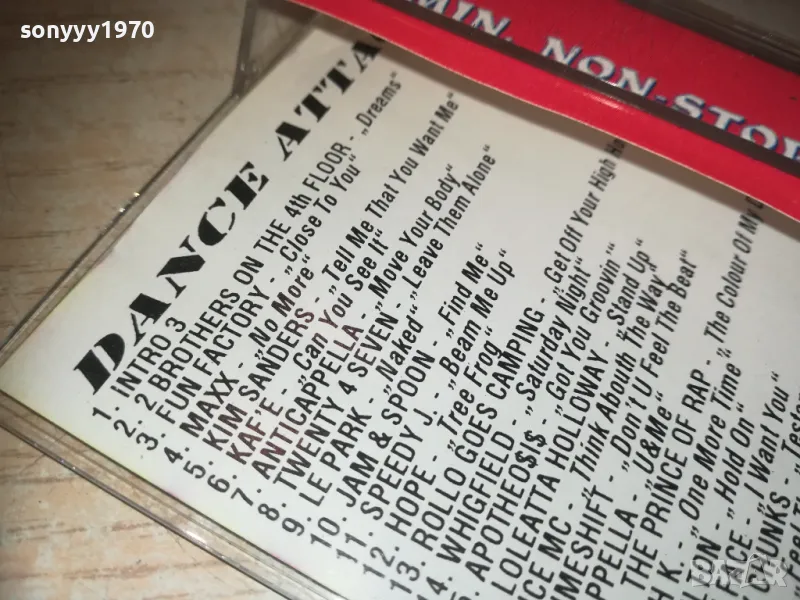 sonyyy1970
MIN. NON-STOP
DANCE ATTA
1. INTRO 3
2. 2 BROTHERS ON THE 4th FLOOR - „Dreams"
3. FUN FACTORY - „Close To You"
4. MAXX - „No More"
5. KIM SANDERS - „Tell Me That You Want Me"
6. KAF'E - „Can You See It"
7. ANTICAPPELLA - „Move Your Body"
8. TWENTY 4 SEVEN - „Leave Them Alone"
9. LE PARK - „Naked"
10. JAM & SPOON - „Find Me"
11. SPEEDY J. - „Beam Me Up"
12. HOPE - „Tree Frog"
13. ROLLO GOES CAMPING - „Get Off Your High Ho
14. WHIGFIELD - „Saturday Night"
APOTHEO$$ - „Got You Groovin'"
LOLEATTA HOLLOWAY - „Stand Up"
CE MC - „Think Abouth The Way"
MESHIFT - „Don't U Feel The Beat"
PPELLA - „U&Me"
THE PRINCE OF RAP - „The Colour Of My
H K. - „One More Time"
N - „Hold On"
CE - „I Want You"
UNKS -
BAZAR